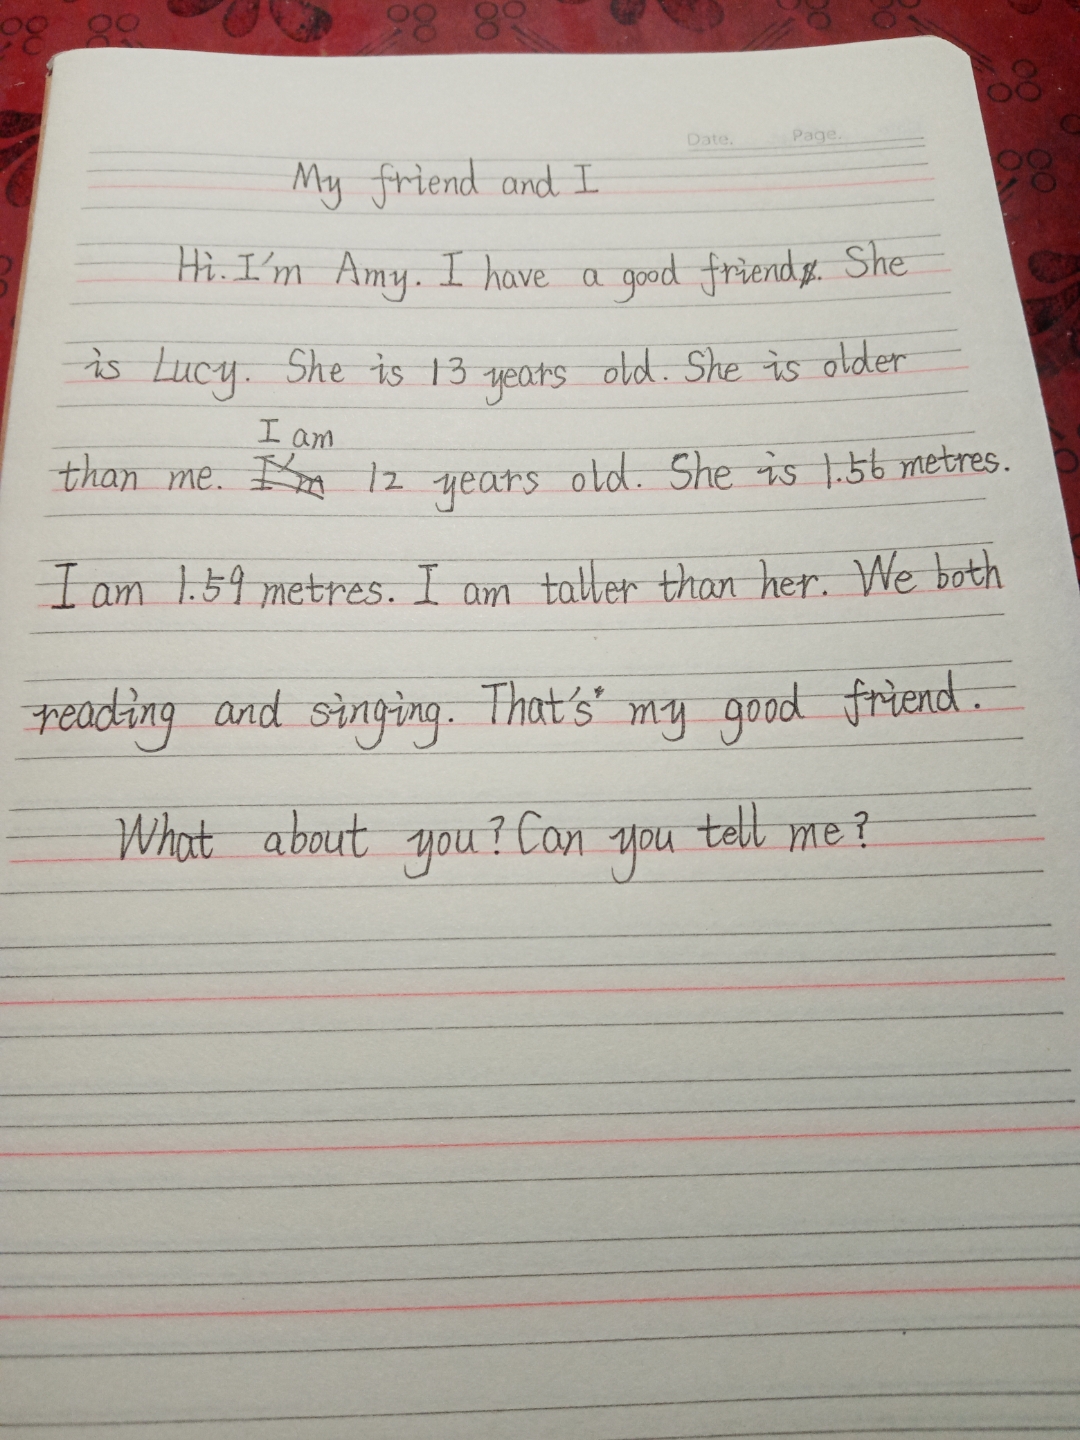 Date. Page.
My friend and I
Hi. I'm Amy. I have a good friend. She
is Lucy. She is 13 years old. She is older
I am
than me. I'm 12 years old. She is 1.56 metres.
I am 1.59 metres. I am taller than her. We both
reading and singing. That's my good friend.
What about you? Can you tell me?